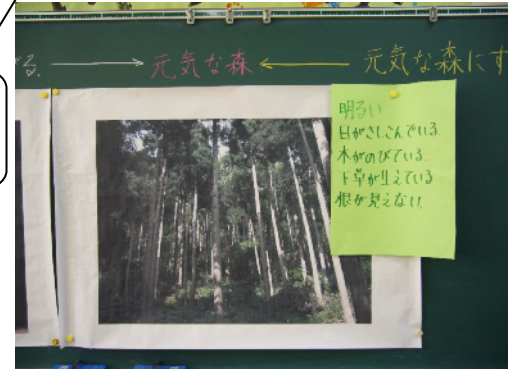 る. → 元気な森 ← 元気な森にす
明るい
日がさしこんでいる.
木がのびている.
下草が生えている
根が見えない.